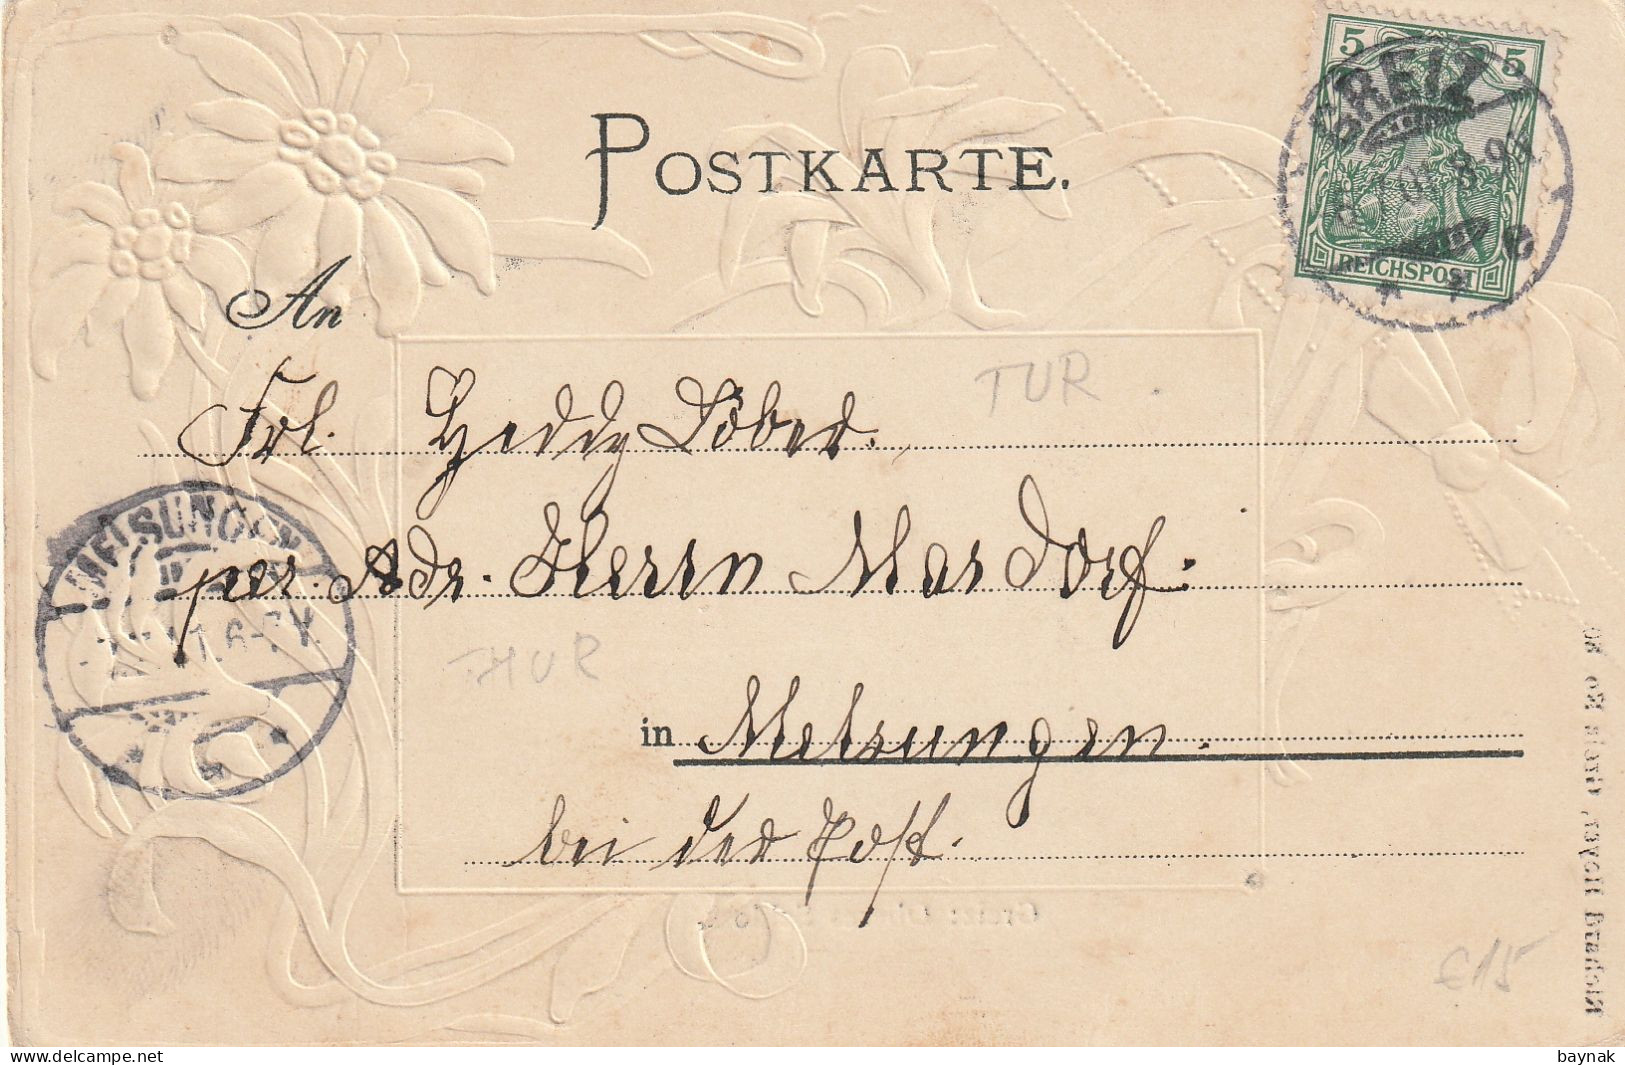 POSTKARTE.
5 5
GREIZ
8-9V
e
REICHSPOST
An
TUR
Frl. Heddy Löber.
MELSUNGEN
6-7V.
per. Adr. Herrn Mardorf.
THUR
in Melsungen.
bei der Post.
€15
baynak